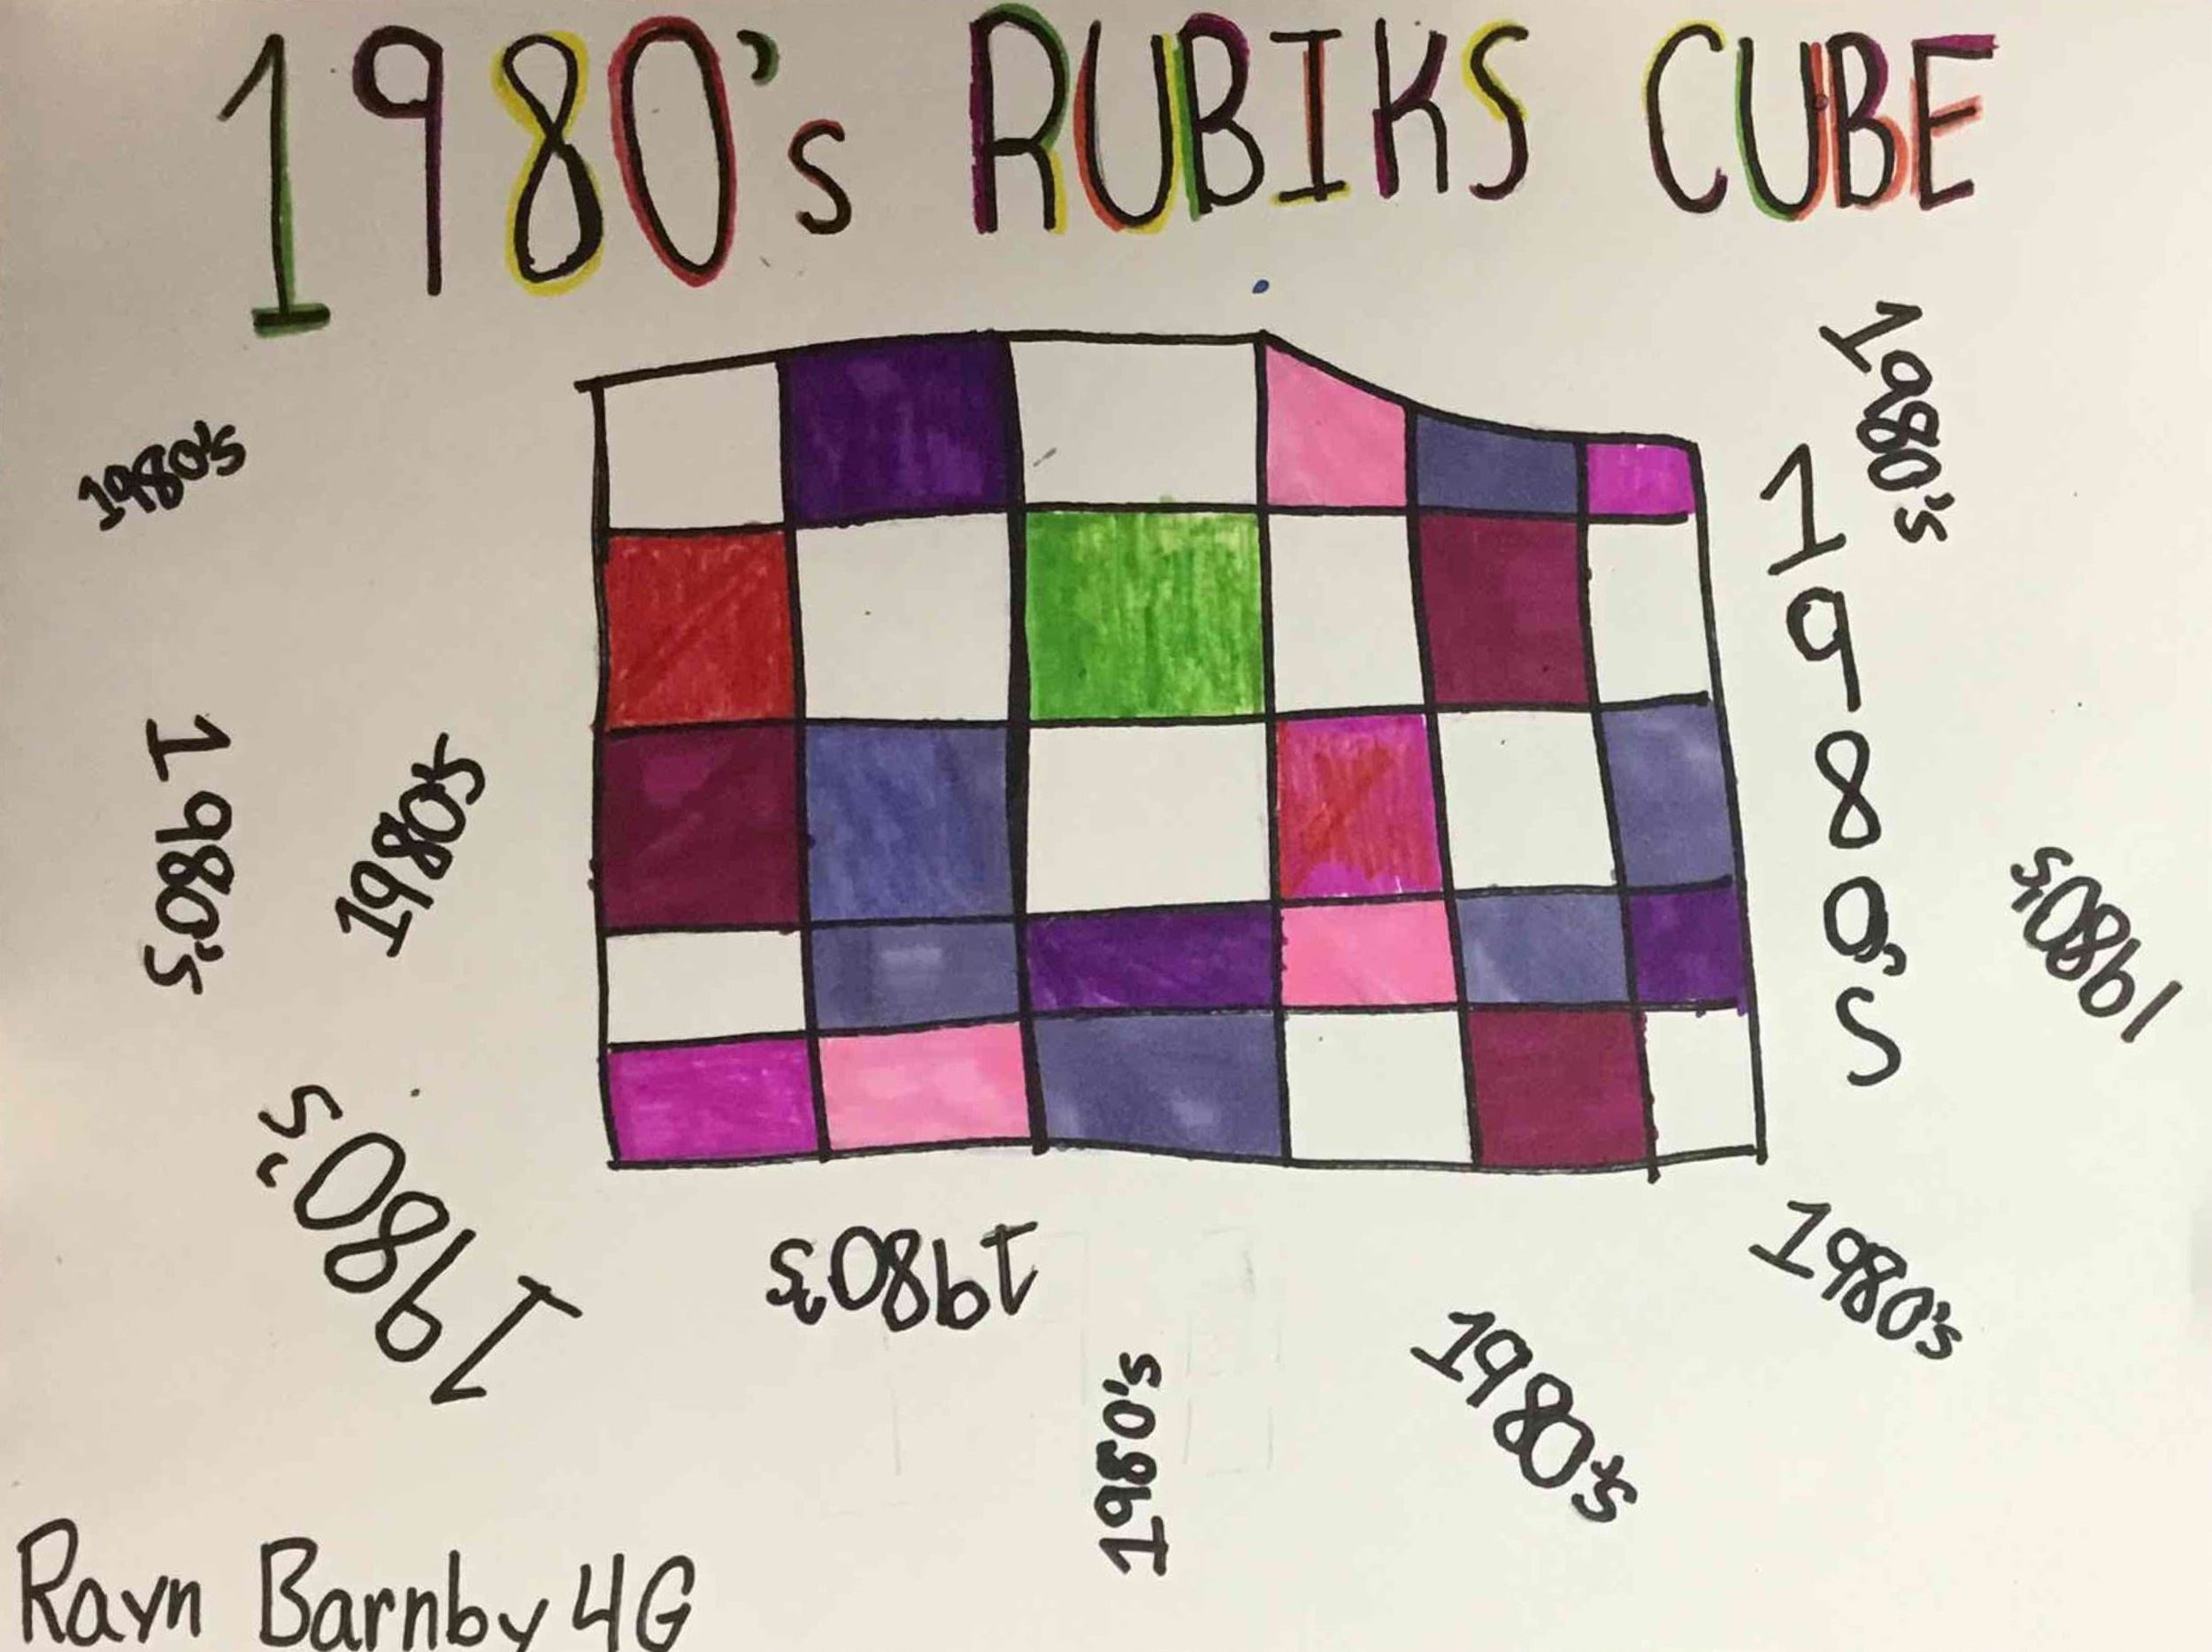 1980's RUBIKS CUBE
1980's
1980's
1980's
1980's
1980s
1980s
1980's
1980's
1980's
1980's
1980's
Rayn Barnby 4G